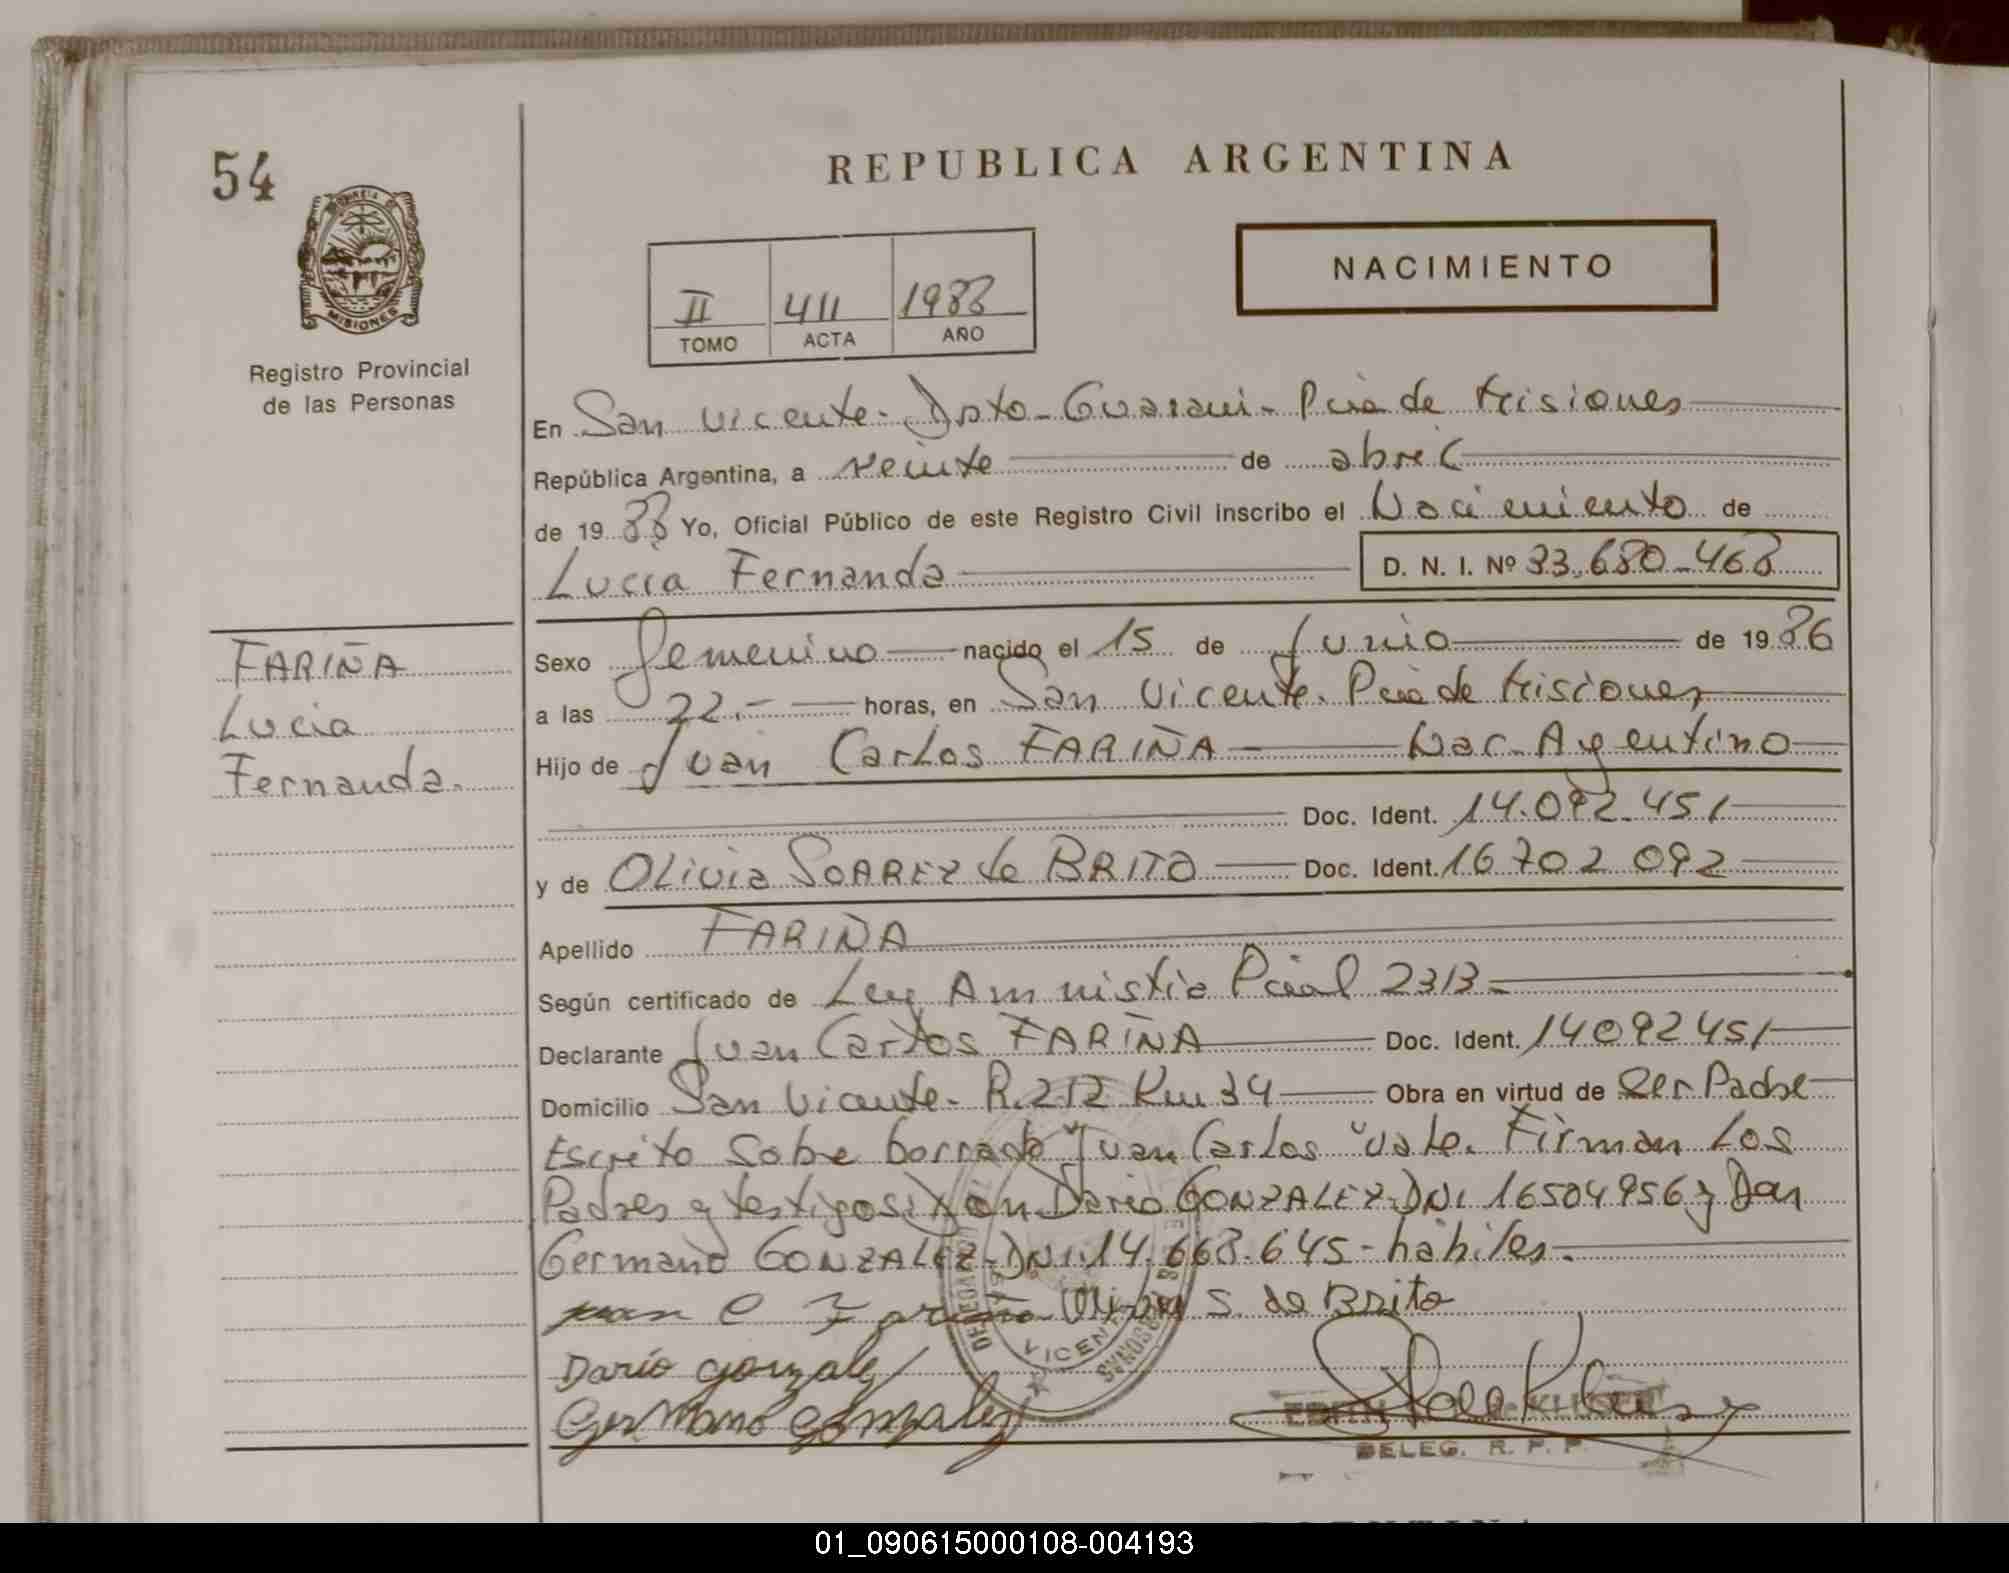 54
REPUBLICA ARGENTINA
MISIONES
Registro Provincial
de las Personas
NACIMIENTO
II 411 1988
TOMO ACTA AÑO
En San Vicente - Dpto - Guarani - Pcia de Misiones
República Argentina, a veinte de abril
de 19 88 Yo, Oficial Público de este Registro Civil inscribo el Nacimiento de
Lucia Fernanda D. N. I. Nº 33.680.468
FARIÑA
Lucia
Fernanda.
Sexo femenino nacido el 15 de Junio de 19 86
a las 22.- horas, en San Vicente. Pcia de Misiones
Hijo de Juan Carlos FARIÑA Nac. Argentino
Doc. Ident. 14.092.451
y de Olivia SOAREZ de BRITO Doc. Ident. 16702092
Apellido FARIÑA
Según certificado de Ley Amnistia Pcial 2313
Declarante Juan Carlos FARIÑA Doc. Ident. 14092451
Domicilio San Vicente - R. 212 Km 34 Obra en virtud de Ser Padre
Escrito sobre borrado "Juan Carlos" vale. Firman Los
Padres y testigos: Don Dario GONZALEZ - DNI 16504956 y Don
Germano GONZALEZ - DNI. 14.668.645 - habiles.
Juan C Fariña Olivia S. de Brito
Dario gonzalez
Germano gonzalez
VICEN
EDITH
DELEG. R. P. P.
01_090615000108-004193